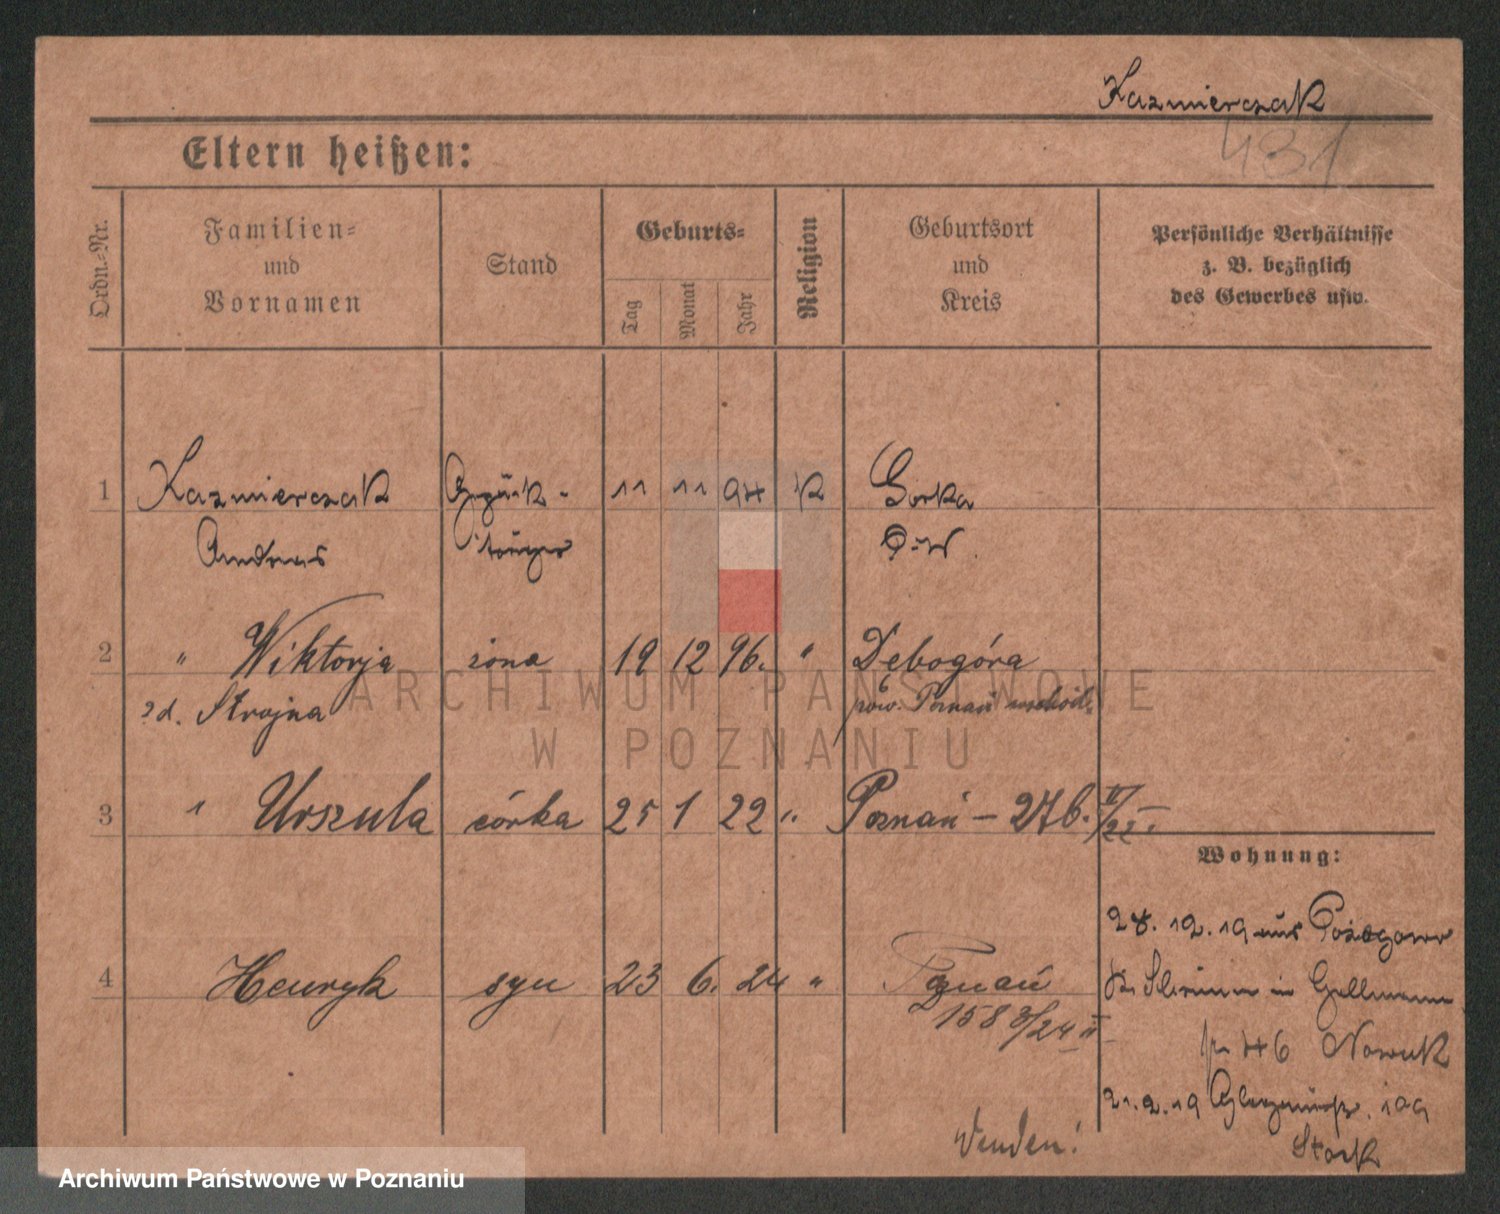 Kazmierczak
431
Eltern heißen:
Ordn.-Nr.
Familien-
und
Vornamen
Stand
Geburts-
Tag
Monat
Jahr
Religion
Geburtsort
und
Kreis
Persönliche Verhältnisse
z. B. bezüglich
des Gewerbes usw.
1 Kazmierczak 11 11 94 K Gorka
Andreas träger
2 " Wiktorja żona 19 12 96. " Dębogóra
zd. Strojna pow. Poznań wschód.
3 " Urszula córka 25 1 22 " Poznań – 276. II/22.
Wohnung:
28.12.19 aus Pożegowo
Kr. Schrimm in
4 Henryk syn 23 6. 24 " Poznań
158 3/24 II
46 Nowak
21.2.19 199
Wenden!
ARCHIWUM PAŃSTWOWE
W POZNANIU
Archiwum Państwowe w Poznaniu